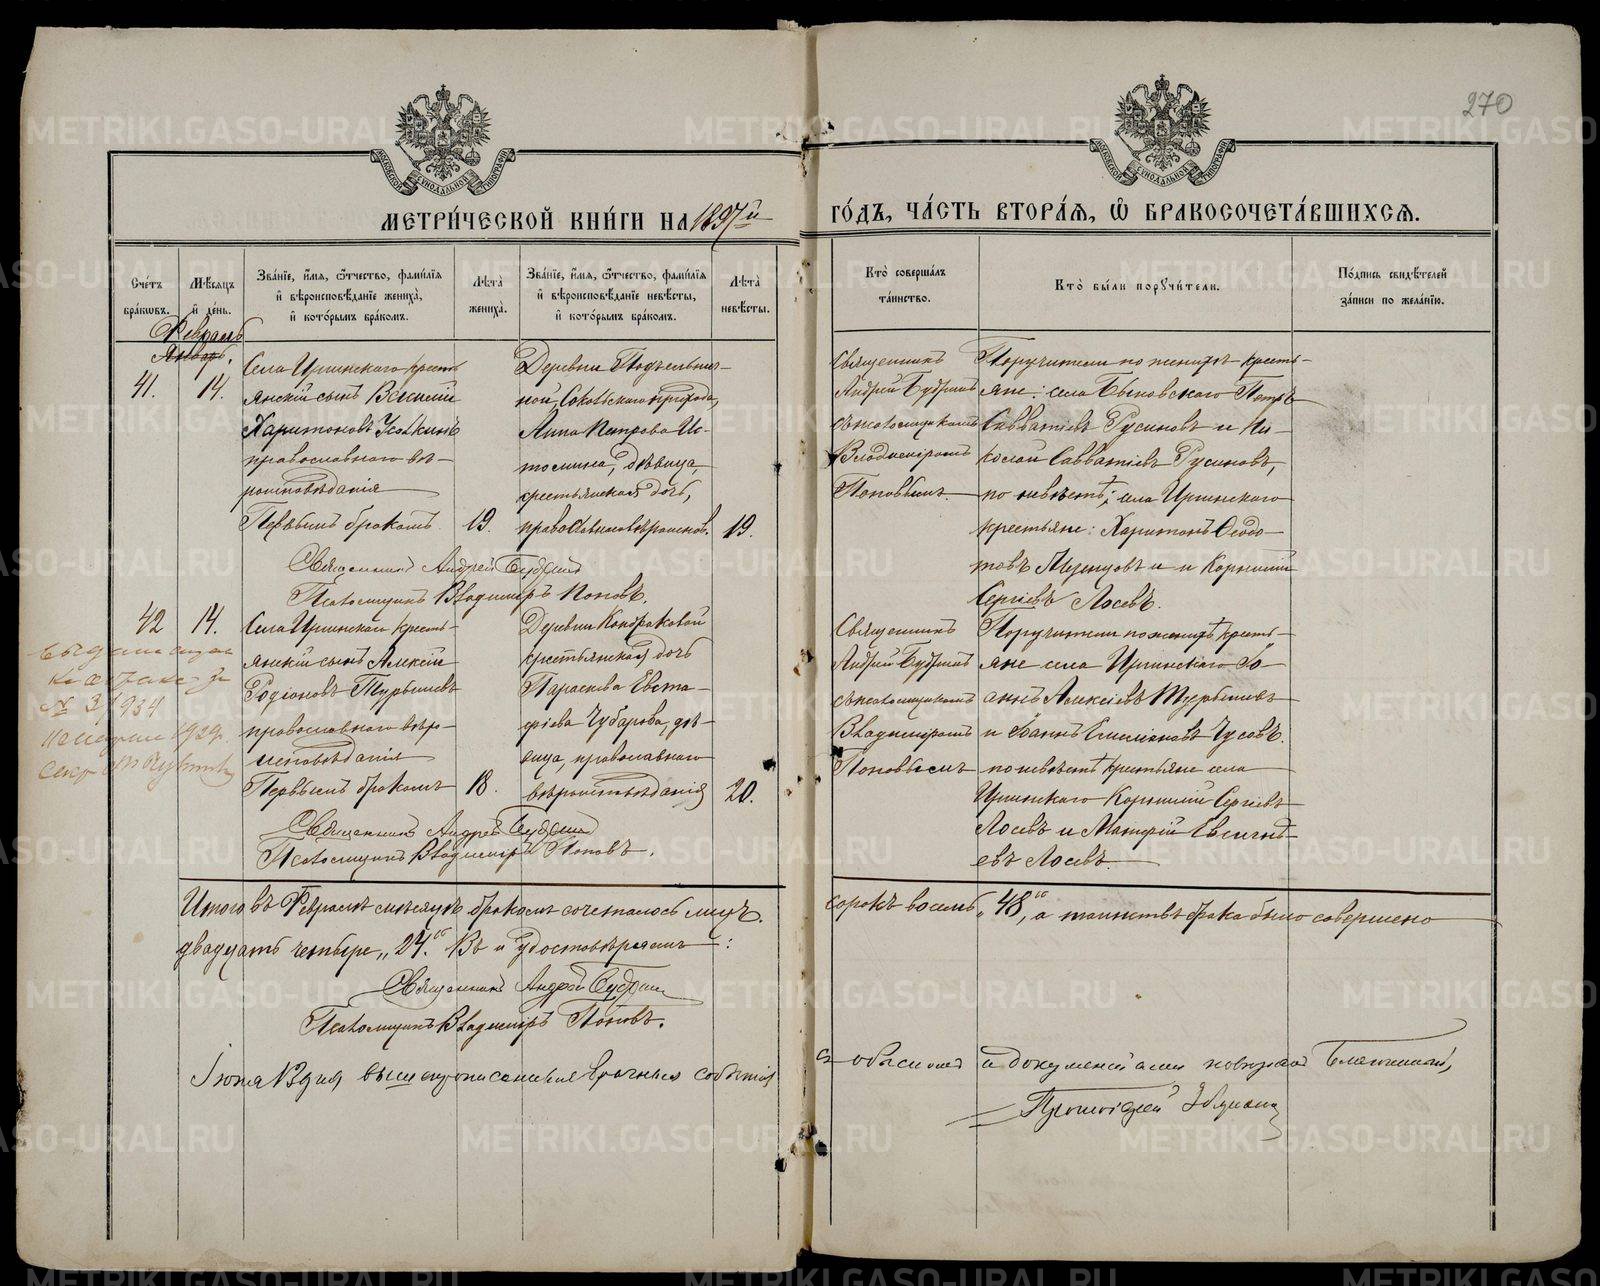 270
МОСКОВСКОЙ СѴНОДАЛЬНОЙ ТИПОГРАФІИ
МОСКОВСКОЙ СѴНОДАЛЬНОЙ ТИПОГРАФІИ
МЕТРИ́ЧЕСКОЙ КНИ́ГИ НА 1897й ГО́ДЪ, ЧА́СТЬ ВТОРА́Я, Ѽ БРАКОСОЧЕТА́ВШИХСЯ.
Сче́тъ бра́кѡвъ.
Мѣ́сяцъ и҆ де́нь.
Зва́нїе, и҆́мя, ѻ҆́тчество, фами́лїя и҆ вѣроисповѣ́данїе жениха̀, и҆ кото́рымъ бра́комъ.
Лѣ́та жениха̀.
Зва́нїе, и҆́мя, ѻ҆́тчество, фами́лїя и҆ вѣроисповѣ́данїе невѣ́сты, и҆ кото́рымъ бра́комъ.
Лѣ́та невѣ́сты.
Кто̀ соверша́лъ та́инство.
Кто̀ бы́ли порꙋчи́тели.
По́дпись свидѣ́телей за́писи по жела́нїю.
Февраль
Январь.
41.
14.
Села Иргинскаго кресть
янскій сынъ Василій
Харитоновъ
православнаго вѣ-
роисповѣданія
Первымъ бракомъ.
19.
Деревни
ной,
Анна Петрова Ис-
томина, дѣвица,
крестьянская дочь,
православнаго вѣроисповѣд.
19.
Священникъ
Андрей
съ псаломщикомъ
Владиміромъ
Поповымъ.
Поручители по женихѣ кресть-
яне: села Быковскаго Петръ
Савватіевъ Русиновъ и Ни-
колай Савватіевъ Русиновъ,
по невѣстѣ; села Иргинскаго
крестьяне: Харитонъ Ѳедо-
товъ и Корнилій
Сергіевъ Лосевъ.
Священникъ Андрей
Псаломщикъ Владиміръ Поповъ.
42
14.
Села Иргинскаго кресть-
янскій сынъ Алексій
Родіоновъ Турышевъ
православнаго вѣро-
исповѣданія
Первымъ бракомъ
18.
Деревни Кондраковой
крестьянская дочь
Параскева Евста-
фіева Чубарова, дѣ-
вица, православнаго
вѣроисповѣданія
20.
Священникъ
Андрей
съ псаломщикомъ
Владиміромъ
Поповымъ
Поручители по женихѣ кресть-
яне села Иргинскаго Іо-
аннъ Алексіевъ Турышевъ
и Іоаннъ Емиліановъ Чусовъ.
по невѣстѣ крестьяне села
Иргинскаго Корнилій Сергіевъ
Лосевъ и Матѳій
евъ Лосевъ.
Священникъ Андрей
Псаломщикъ Владиміръ Поповъ.
№ 3/934
1929г.
Итого въ Февралѣ мѣсяцѣ бракомъ сочеталось лицъ сорокъ восемь „48“, а таинствъ брака было совершено
двадцать четыре „24.“ Въ чемъ и удостовѣряемъ:
Священникъ Андрей
Псаломщикъ Владиміръ Поповъ.
Іюня дня вышепрописанныя брачныя событія съ обыскомъ и документами повѣрялъ Благочинный,
Протоіерей